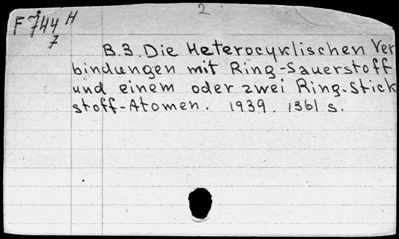 2
F j H
744
7
B.3. Die Heterocyklischen Ver
bindungen mit Ring-Sauerstoff
und einem oder zwei Ring-Stick
stoff-Atomen. 1939. 1361 s.